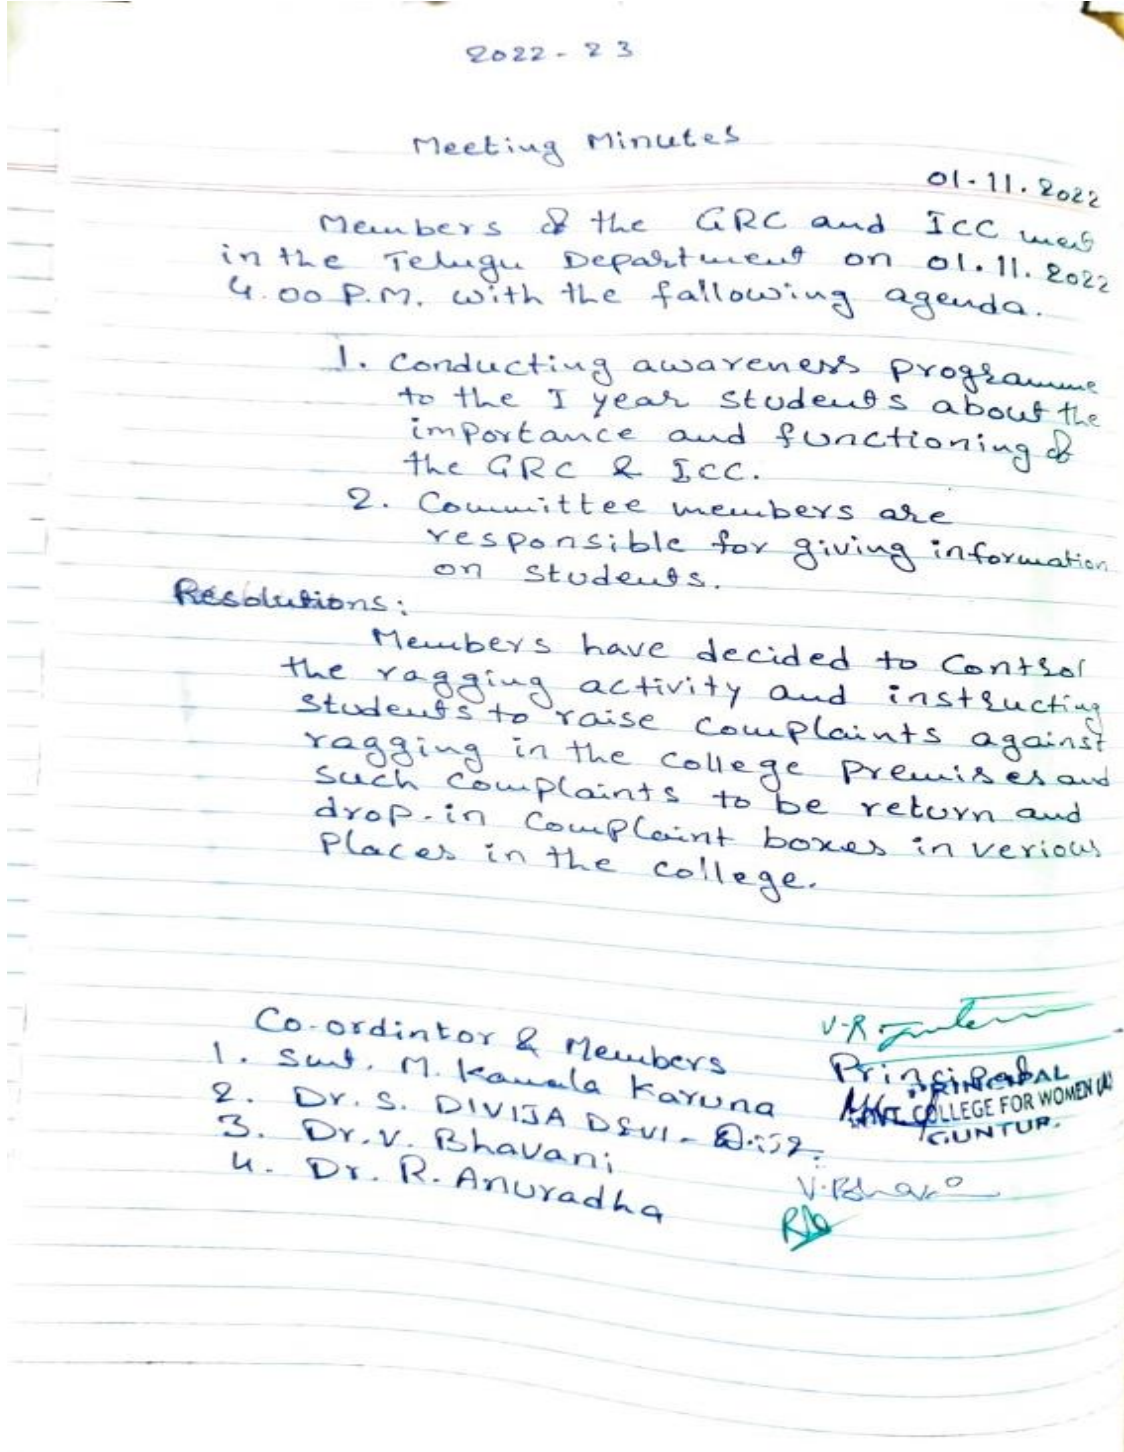 2022-23
Meeting Minutes
01.11.2022
Members of the GRC and ICC meet
in the Telugu Department on 01.11.2022
4.00 P.M. with the fallowing agenda.
1. Conducting awareness programme
to the I year students about the
importance and functioning of
the GRC & ICC.
2. Committee members are
responsible for giving information
on students.
Resolutions:
Members have decided to Control
the ragging activity and instructing
students to raise complaints against
ragging in the college premises and
such complaints to be return and
drop-in complaint boxes in verious
places in the college.
Co-ordintor & Members
1. Smt. M. Kamala Karuna
2. Dr. S. DIVIJA DEVI -
3. Dr. V. Bhavani
4. Dr. R. Anuradha
V.R.
Principal
PRINCIPAL
COLLEGE FOR WOMEN (A)
GUNTUR.
V. Bhavani